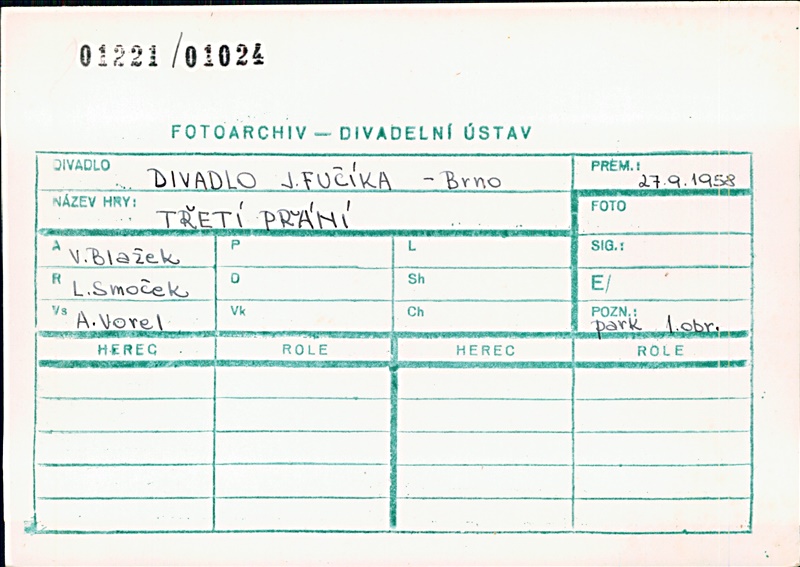 01221/01024
FOTOARCHIV — DIVADELNÍ ÚSTAV
DIVADLO DIVADLO J.FUČÍKA - Brno
PREM.: 27.9.1958
NÁZEV HRY: TŘETÍ PŘÁNÍ
FOTO
A V.Blažek P L SIG.:
R L.Smoček D Sh E/
Vs A.Vorel Vk Ch POZN.: park 1.obr.
HEREC ROLE HEREC ROLE